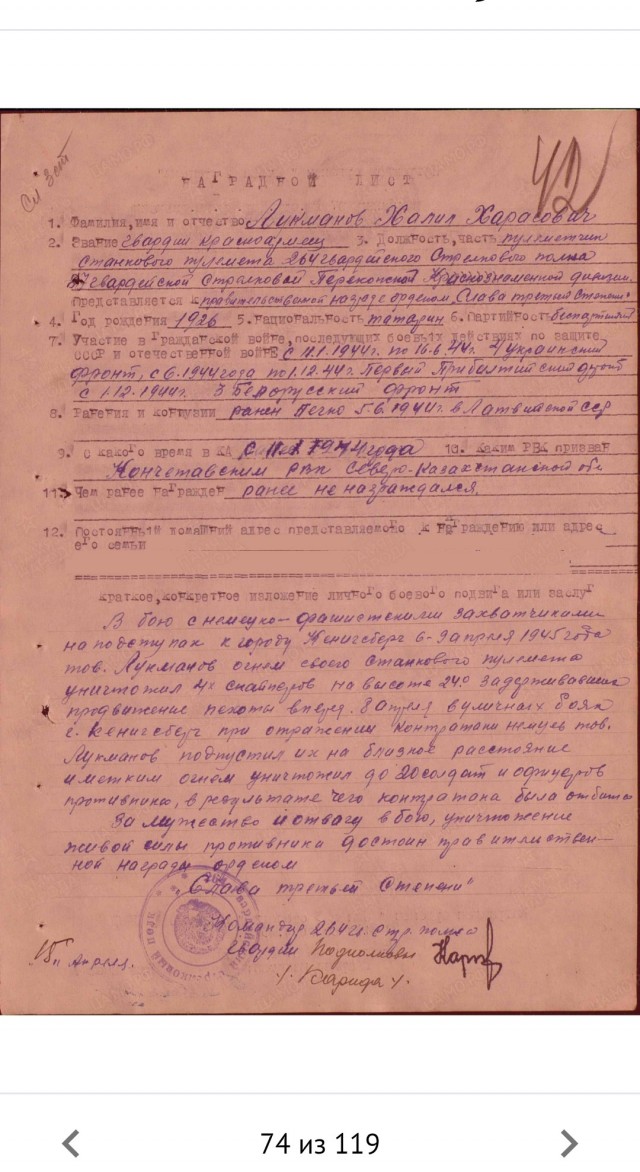 Сл 3 ст
42
НАГРАДНОЙ ЛИСТ
1. Фамилия, имя и отчество Лукманов Халил Харасович
2. Звание гвардии красноармеец 3. Должность, часть пулеметчик
станкового пулемета 264 гвардейского Стрелкового полка
87 гвардейской Стрелковой Перекопской Краснознаменной дивизии.
Представляется к правительственной награде орденом „Слава третьей Степени"
4. Год рождения 1926 5. Национальность татарин 6. Партийность беспартийный
7. Участие в Гражданской войне, последующих боевых действиях по защите
СССР и отечественной войне с 11.1.1944г. по 16.6.44г. 4 Украинский
фронт, с 6.1944 года по 1.12.44г. Первый Прибалтийский фронт
с 1.12.1944г. 3 Белорусский фронт
8. Ранения и контузии ранен легко 5.6.1944г. в Латвийской сср
9. С какого время в КА с 1944 года 10. Каким РВК призван
Кокчетавским РВК Северо-Казахстанской обл
11. Чем ранее награжден ранее не награждался.
12. Постоянный домашний адрес представляемого к награждению или адрес
его семьи
краткое, конкретное изложение личного боевого подвига или заслуг
В бою с немецко-фашистскими захватчиками
на подступах к городу Кенигсберг 6-9 апреля 1945 года
тов. Лукманов огнем своего станкового пулемета
уничтожил 4х снайперов на высоте 24.0 задерживавших
продвижение пехоты вперед. 8 апреля в уличных боях
г. Кенигсберг при отражении контратаки немцев тов.
Лукманов подпустил их на близкое расстояние
и метким огнем уничтожил до 20 солдат и офицеров
противника, в результате чего контратака была отбита
За мужество и отвагу в бою, уничтожение
живой силы противника достоин правительствен-
ной награды орденом
„Слава третьей Степени"
Командир 264 гв. стр. полка
гвардии Подполковник
15 апреля
74 из 119